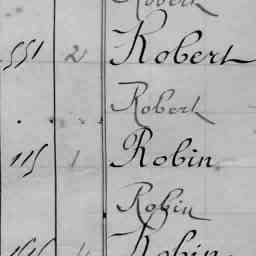 Robert
551 2 Robert
Robert
115 1 Robin
Robin
Robin